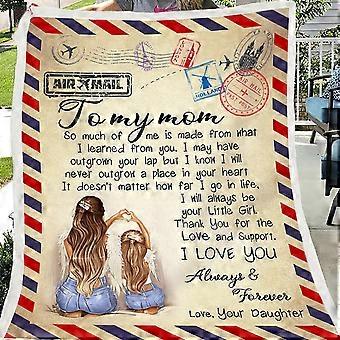 AIR MAIL
HOLLAND
To my mom
So much of me is made from what
I learned from you. I may have
outgrown your lap but I know I will
never outgrow a place in your heart
It doesn't matter how far I go in life,
I will always be
your Little Girl.
Thank You for the
Love and Support.
I LOVE YOU
Always &
Forever
Love, Your Daughter